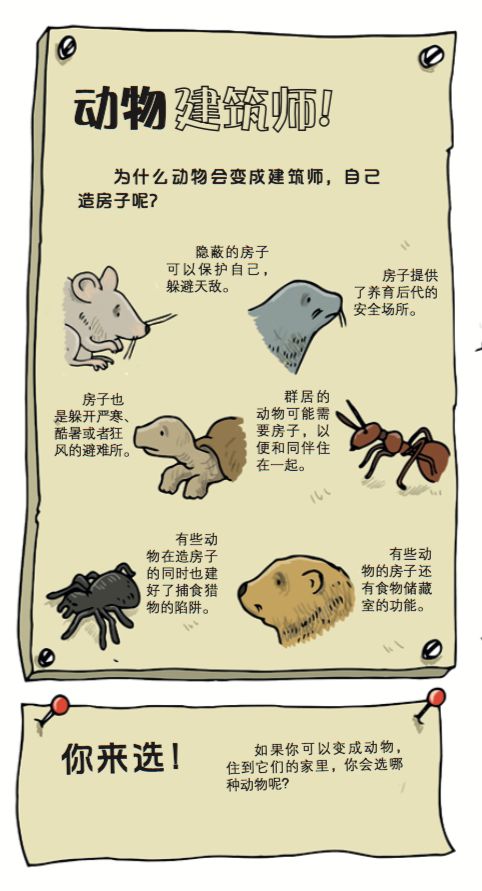 动物建筑师!
为什么动物会变成建筑师，自己
造房子呢?
隐蔽的房子
可以保护自己，
躲避天敌。
房子提供
了养育后代的
安全场所。
房子也
是躲开严寒、
酷暑或者狂
风的避难所。
群居的
动物可能需
要房子，以
便和同伴住
在一起。
有些动
物在造房子
的同时也建
好了捕食猎
物的陷阱。
有些动
物的房子还
有食物储藏
室的功能。
你来选!
如果你可以变成动物，
住到它们的家里，你会选哪
种动物呢?